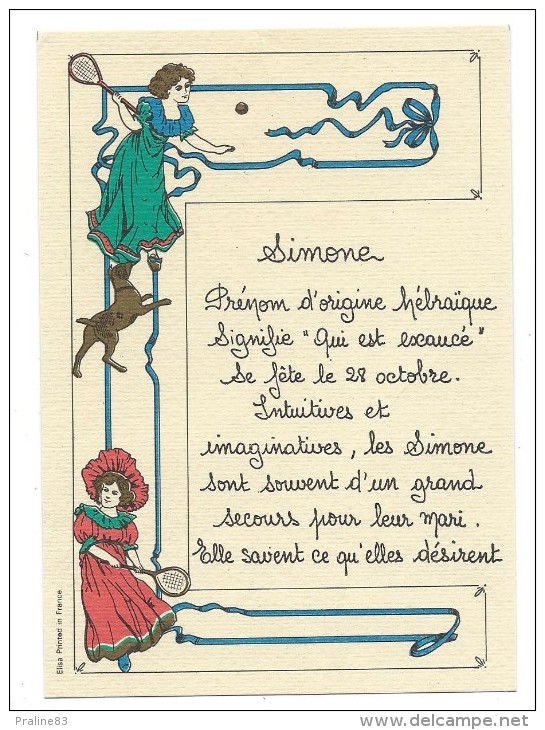 Simone
Prénom d'origine hébraïque
Signifie "Qui est exaucé"
Se fête le 28 octobre.
Intuitives et
imaginatives, les Simone
sont souvent d'un grand
secours pour leur mari.
Elle savent ce qu'elles désirent
Elisa Printed in France
Praline83
delcampe.net